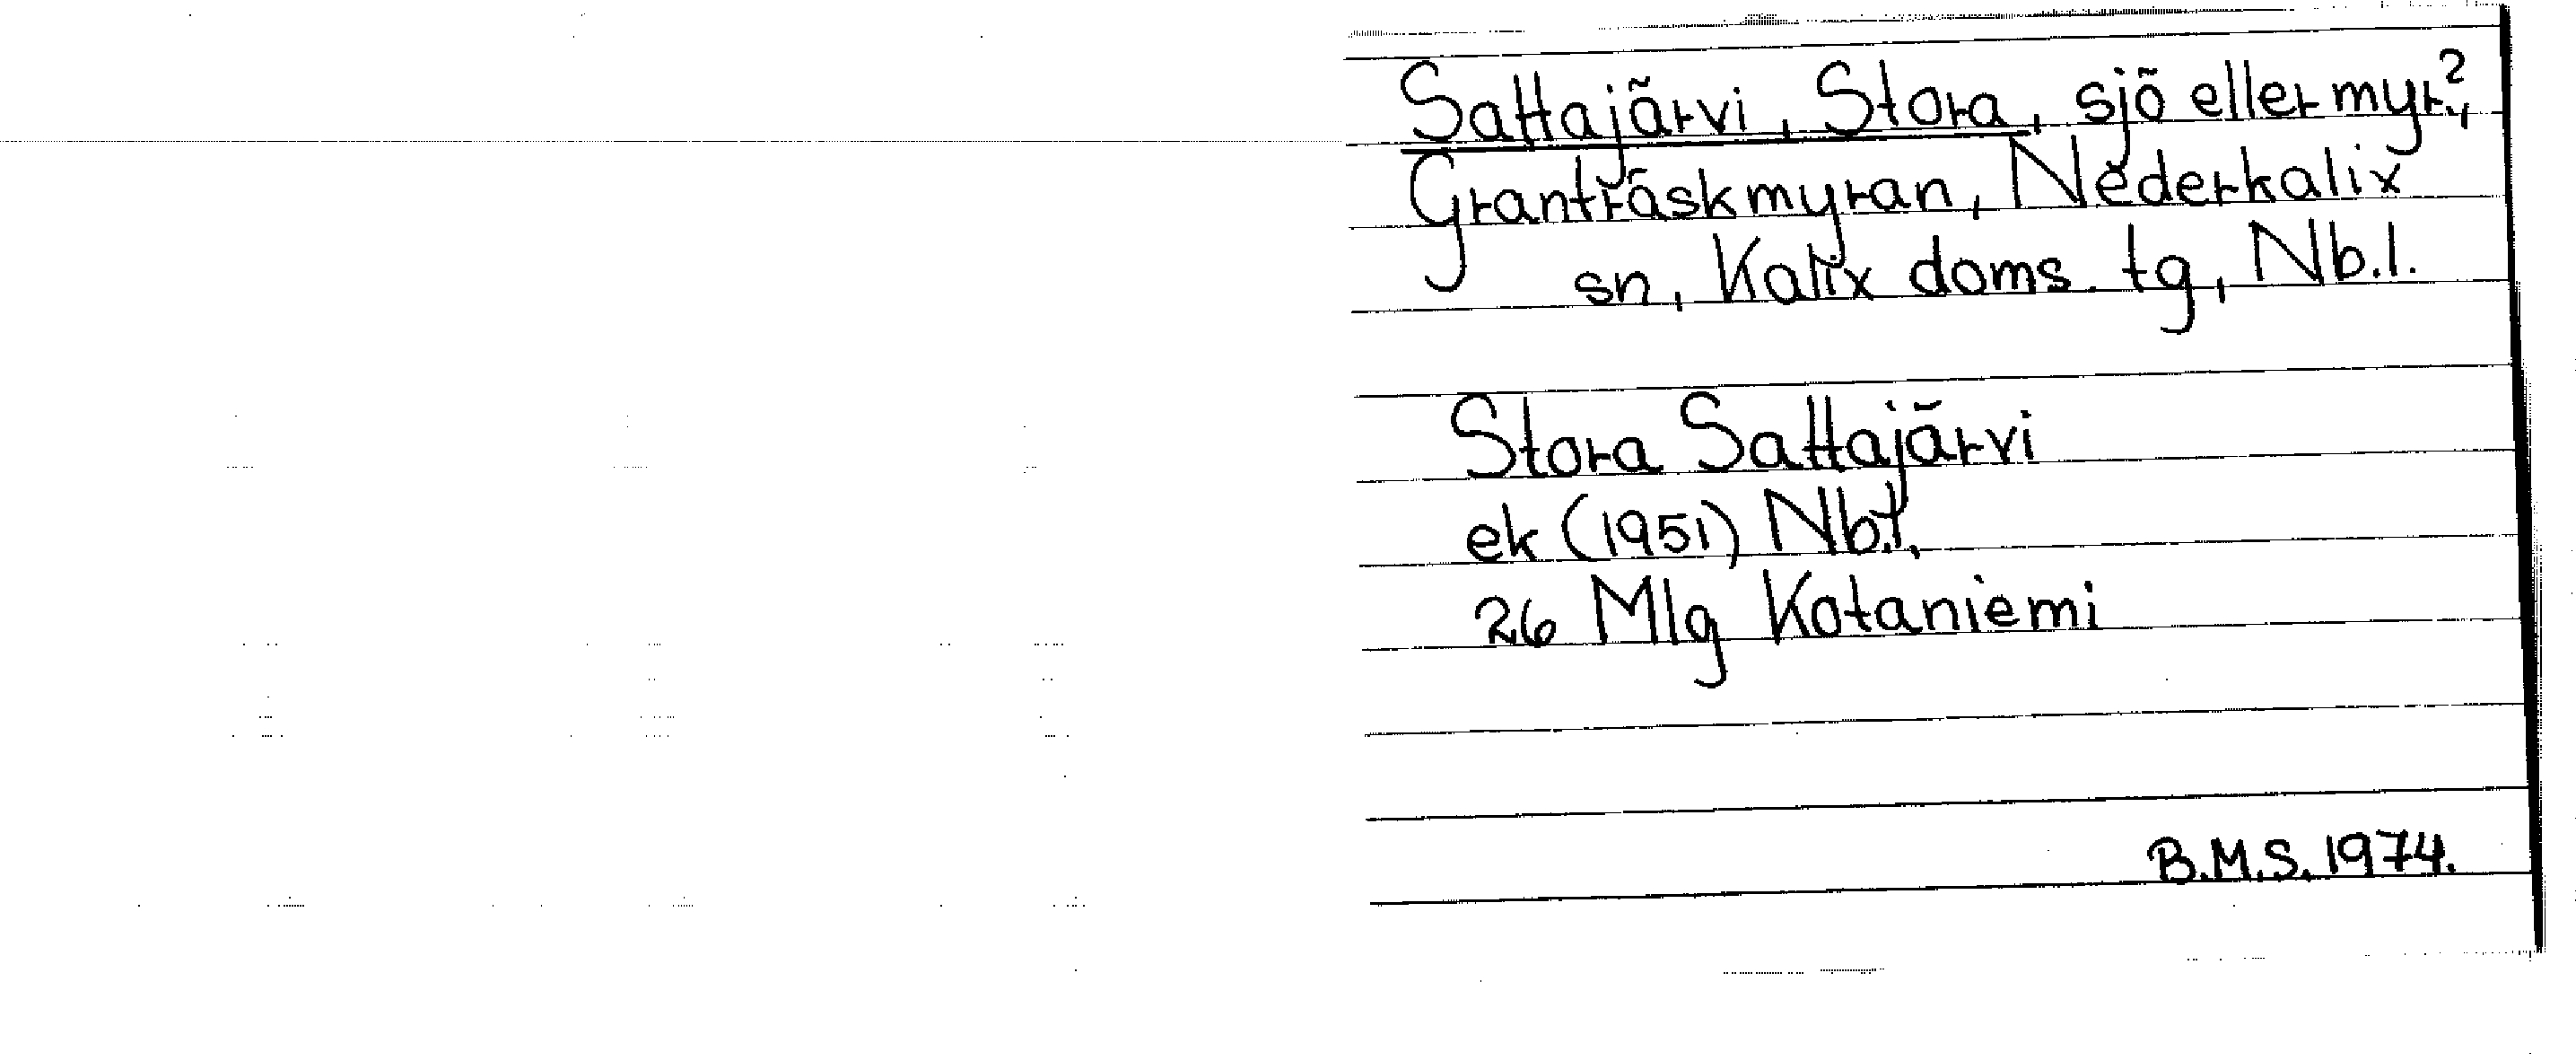 Sattajärvi, Stora, sjö eller myr?,
Granträskmyran, Nederkalix
sn, Kalix doms. tg, Nb.l.
Stora Sattajärvi
ek (1951) Nb.l.
26 Mlg Kotaniemi
B.M.S. 1974.